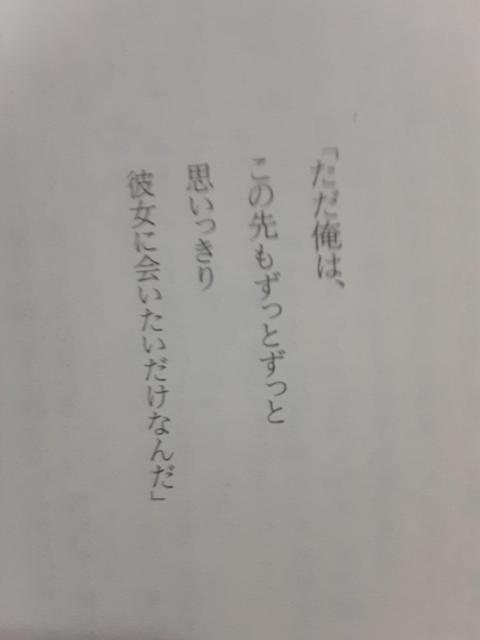 「ただ俺は、
この先もずっとずっと
思いっきり
彼女に会いたいだけなんだ」